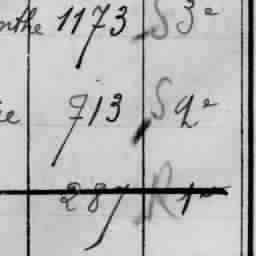 nthe 1173 S 3e
713 S 2e
287 R 1